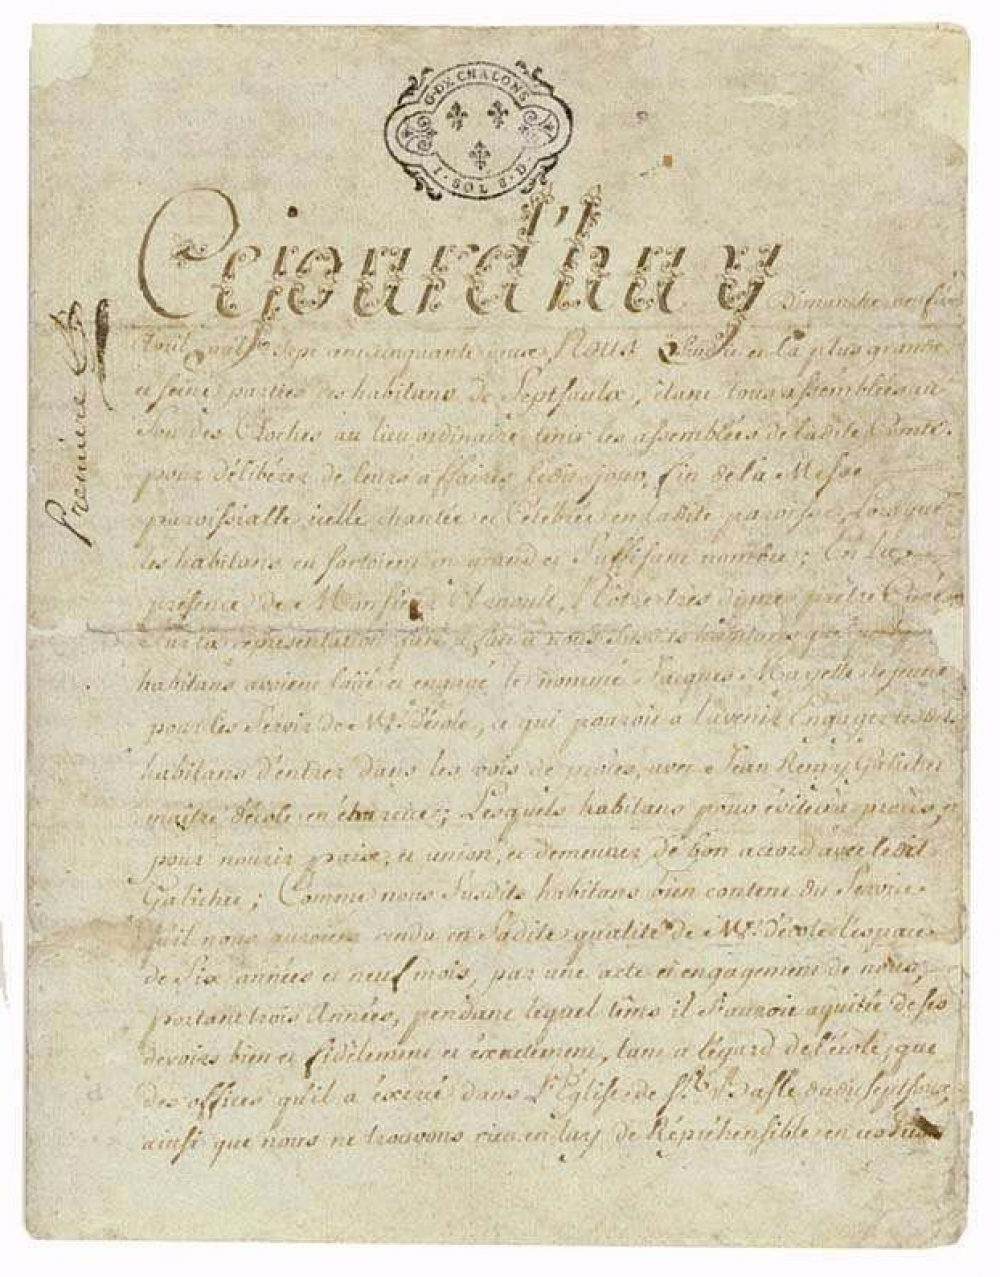 G. DE CHALONS
1. SOL 8. D.
Cejourd'huy
Dimanche
Première
Avril sept cent cinquante Nous Sindic et la plus grande
et seine parties des habitans de Septsaulx, étant tous assemblées au
son des Cloches au lieu ordinaire tenir les assemblées de ladite Comté.
pour délibérer de leurs affaires jour, fin de la Messe
paroissialle icelle chantée et Célébrée en ladite paroisse, Lorsque
les habitans en sortoient en grand et Suffisant nombre; En la
présence de Monsieur Arnoult, Nôtre très digne prêtre Curé
Sur la représentation à nous habitans que
habitans avoient loüé et engagé le nommé Jacques Mayette le jeune
pour les Servir de Mre. d'école, ce qui pouroit a l'avenir Engager
habitans d'entrer dans les vois de procès, avec Jean Remy Galichet
maitre d'école en éxercice; Lesquels habitans pour éviter à procès, et
pour nourir paix, et union, et demeurer de bon accord avec ledit
Galichet; Comme nous Susdits habitans bien content du Service
qu'il nous auroient rendu en Sadite qualité de Mre. d'école l'espace
de Six années et neuf mois, par une acte et engagement de nous,
portant trois Années, pendant lequel tems il s'auroit aquitée de ses
devoirs bien et fidèlement et éxactement, tant a l'égard de l'école, que
des offices qu'il a éxercé dans l'Église de St. Basle dudit Septsaux,
ainsi que nous ne trouvons rien en luy de Répréhensible en